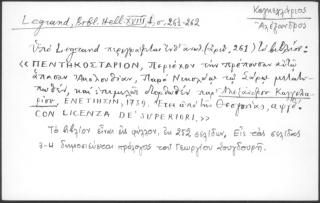 Legrand, Bibl. Hell. XVIII, 1, σ. 261-262
Καγκελλάριος
Ἀλέξανδρος
Ὑπὸ Legrand περιγράφεται (ἀριθ. 261) τὸ βιβλίον:
«ΠΕΝΤΗΚΟΣΤΑΡΙΟΝ, Περιέχον τὴν πρέπουσαν αὐτῷ
ἅπασαν Ἀκολουθίαν, Παρὰ Νικολάῳ τῷ Σάρῳ
καὶ ἐπιμελῶς διορθωθὲν παρ' Ἀλεξάνδρου Καγκελα-
ρίου, ΕΝΕΤΙΗΣΙΝ, 1739. Ἔτει ἀπὸ τῆς Θεογονίας, αψλθ'.
CON LICENZA DE' SUPERIORI.»
Τὸ βιβλίον εἶναι εἰς φύλλον, ἐκ 252 σελίδων. Εἰς τὰς σελίδας
3-4 δημοσιεύεται πρόλογος τοῦ Γεωργίου Σουγδουρῆ.